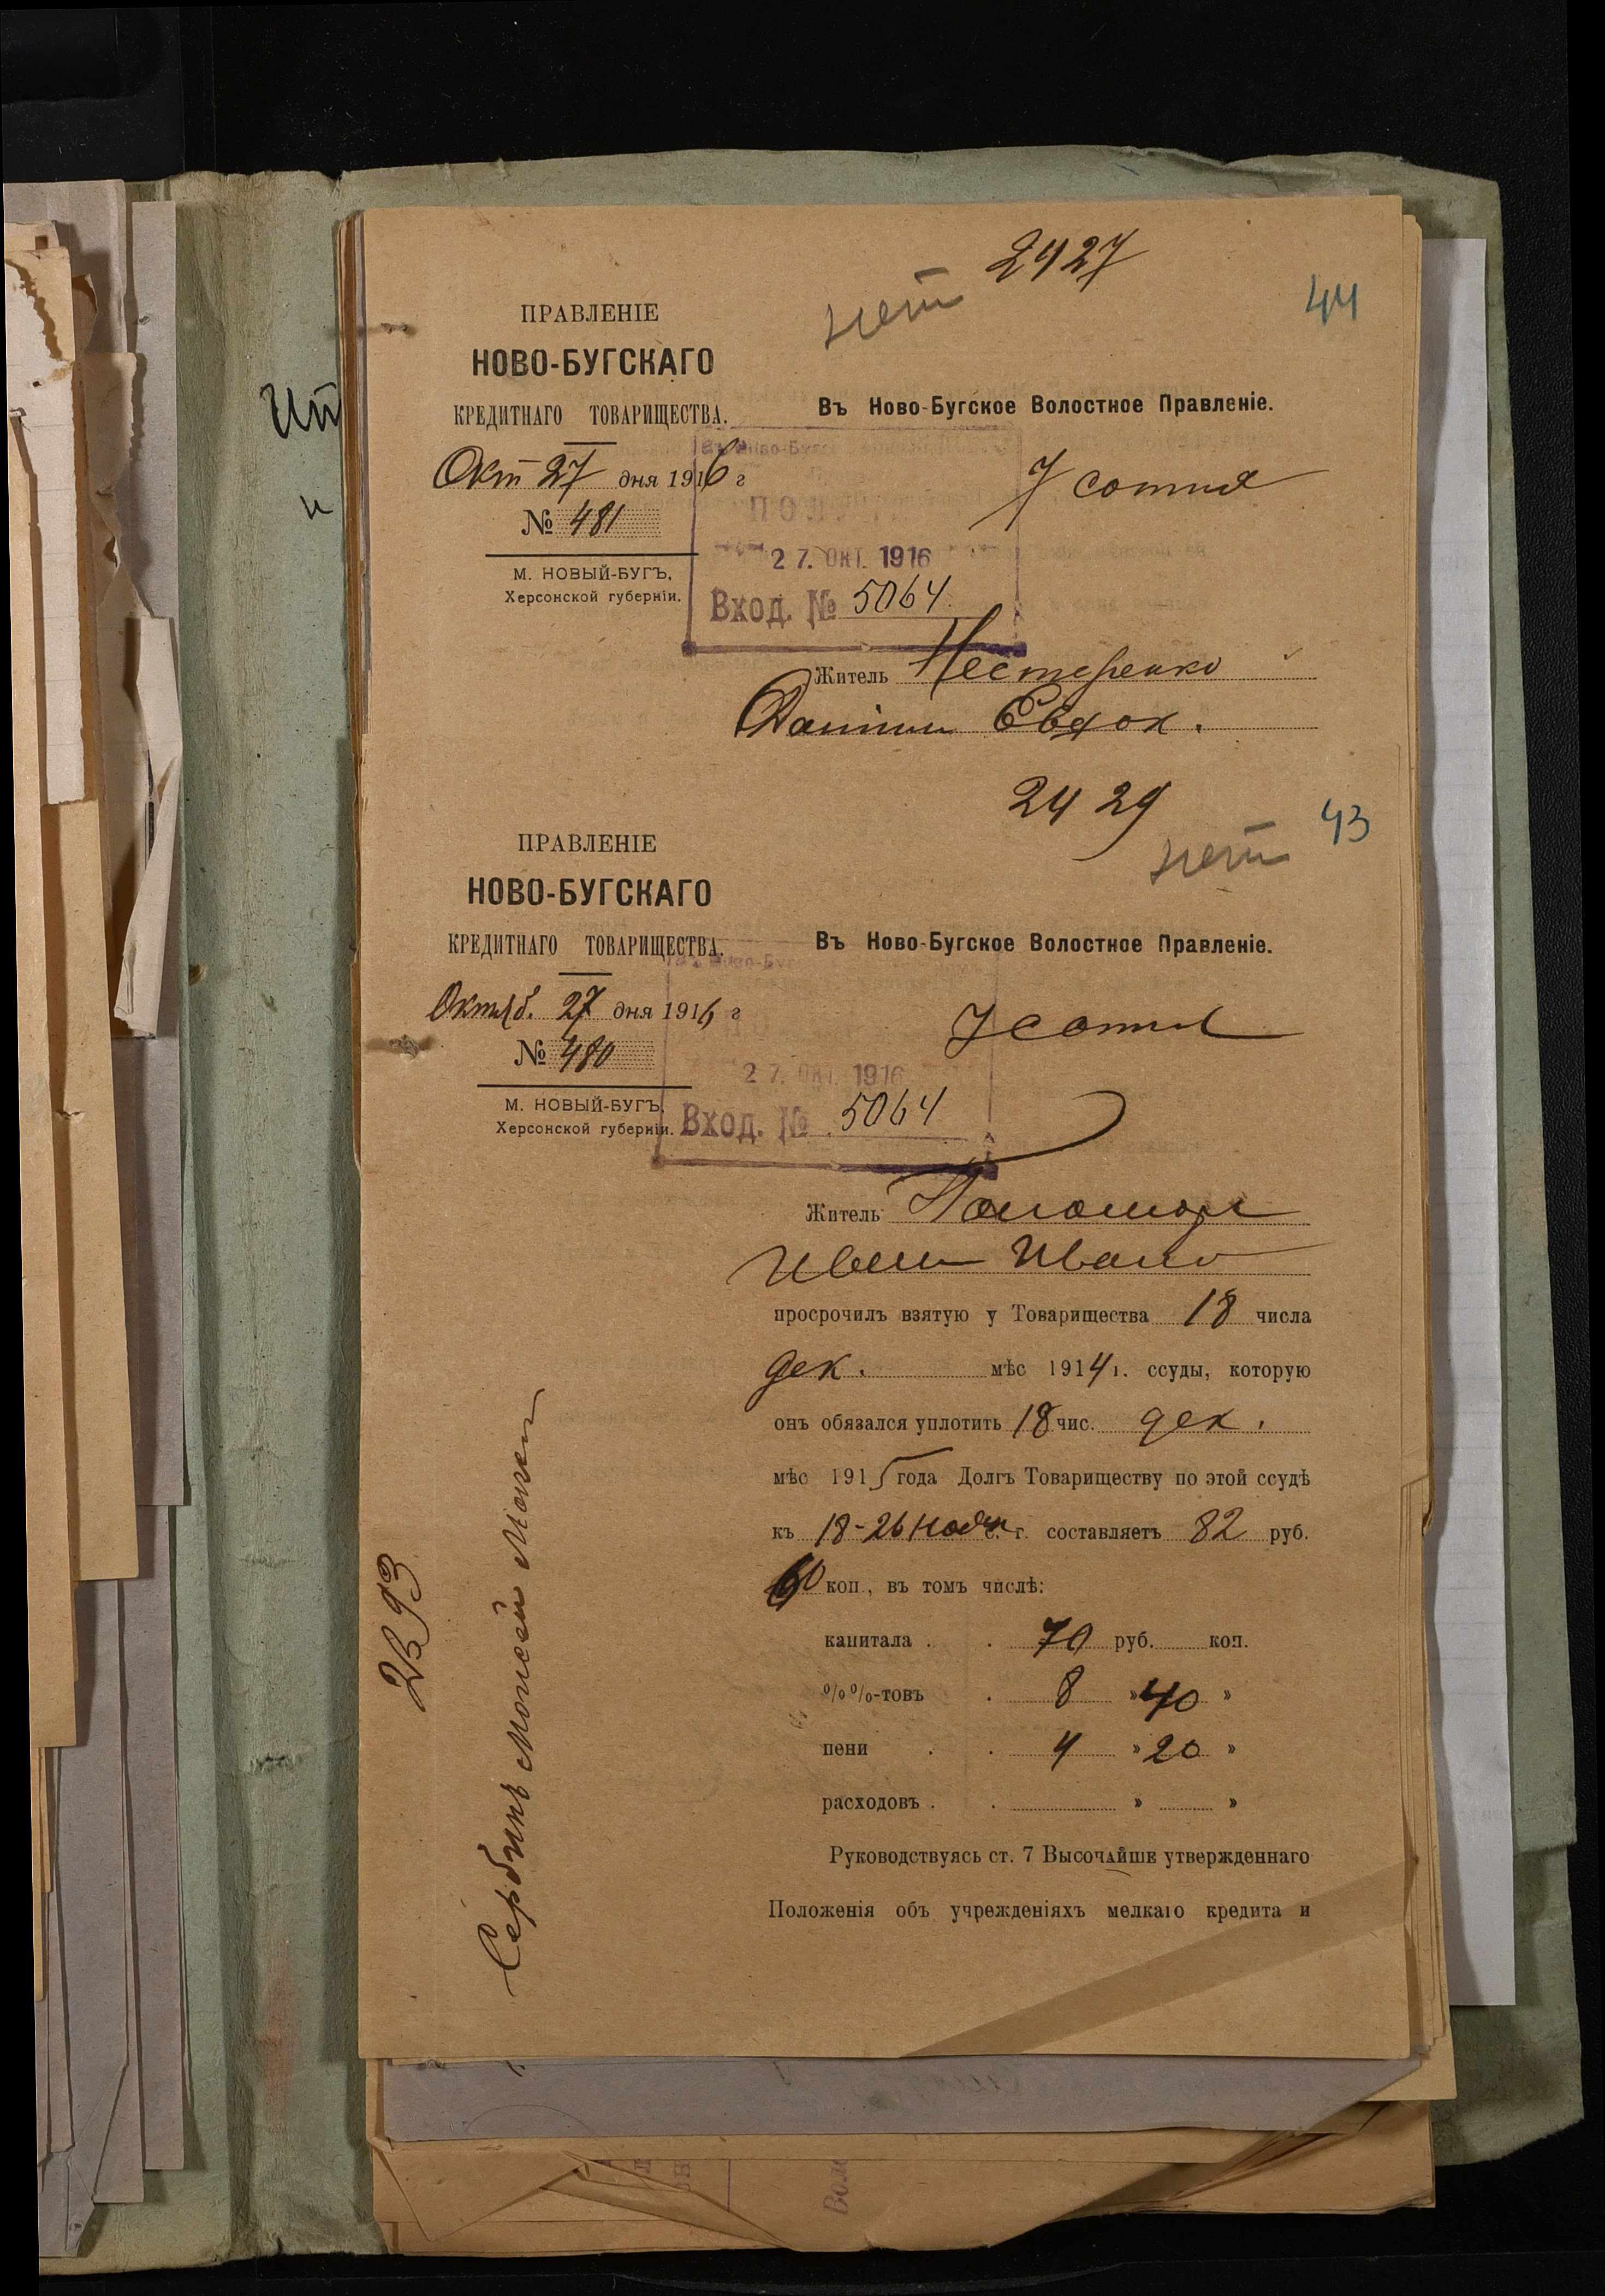 2427
нет
44
ПРАВЛЕНІЕ
НОВО-БУГСКАГО
КРЕДИТНАГО ТОВАРИЩЕСТВА.
Въ Ново-Бугское Волостное Правленіе.
Окт 27 дня 1916 г
7 сотня
№ 481
27. ОКТ. 1916
М. НОВЫЙ-БУГЪ,
Херсонской губерніи.
Вход. № 5064.
Житель Нестеренко
Даніил Евдок.
2429
нет
43
ПРАВЛЕНІЕ
НОВО-БУГСКАГО
КРЕДИТНАГО ТОВАРИЩЕСТВА.
Въ Ново-Бугское Волостное Правленіе.
Октяб. 27 дня 1916 г
7 сотня
№ 480
27. ОКТ. 1916
М. НОВЫЙ-БУГЪ,
Херсонской губерніи.
Вход. № 5064
Житель
Иван Ивано
просрочилъ взятую у Товарищества 18 числа
дек. мѣс 1914 г. ссуды, которую
онъ обязался уплотить 18 чис. дек.
мѣс 1915 года Долгъ Товариществу по этой ссудѣ
къ 18-26 с. г. составляетъ 82 руб.
60 коп., въ томъ числѣ:
капитала . . 70 руб. коп.
%%-товъ . 8 » 40 »
пени . . 4 » 20 »
расходовъ . . » »
Руководствуясь ст. 7 Высочайше утвержденнаго
Положенія объ учрежденіяхъ мелкаго кредита и
Сербинъ Моисей